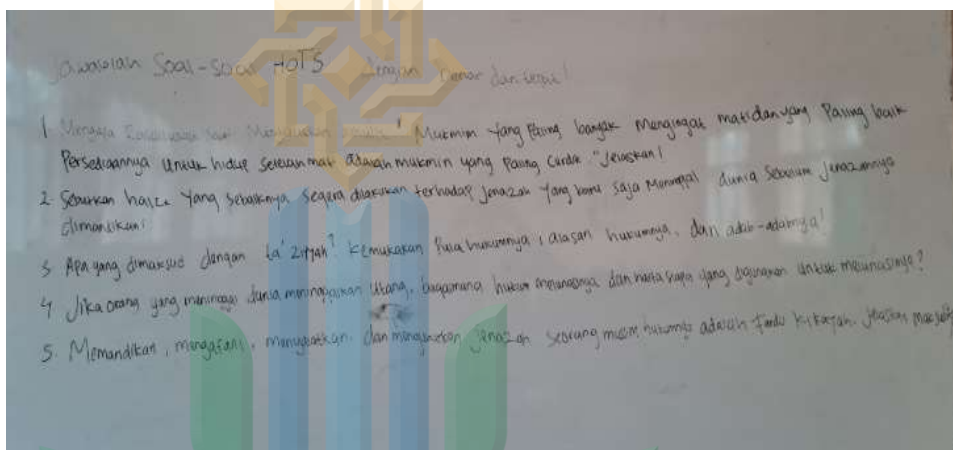 Jawablah Soal-soal HOTS dengan benar dan tepat!
1. Mengapa Rasulullah Saw "Mukmin yang paling banyak mengingat mati dan yang paling baik
Persediaannya untuk hidup setelah mati adalah mukmin yang paling cerdik." Jelaskan!
2. Sebutkan hal-hal yang sebaiknya segera dilakukan terhadap jenazah yang baru saja meninggal dunia sebelum jenazahnya
dimandikan!
3. Apa yang dimaksud dengan ta'ziyah? Kemukakan pula hukumnya, alasan hukumnya, dan adab-adabnya!
4. Jika orang yang meninggal dunia meninggalkan utang, bagaimana hukum melunasinya dan harta siapa yang digunakan untuk melunasinya?
5. Memandikan, mengafani, menyalatkan, dan menguburkan jenazah seorang muslim hukumnya adalah fardu kifayah. Jelaskan